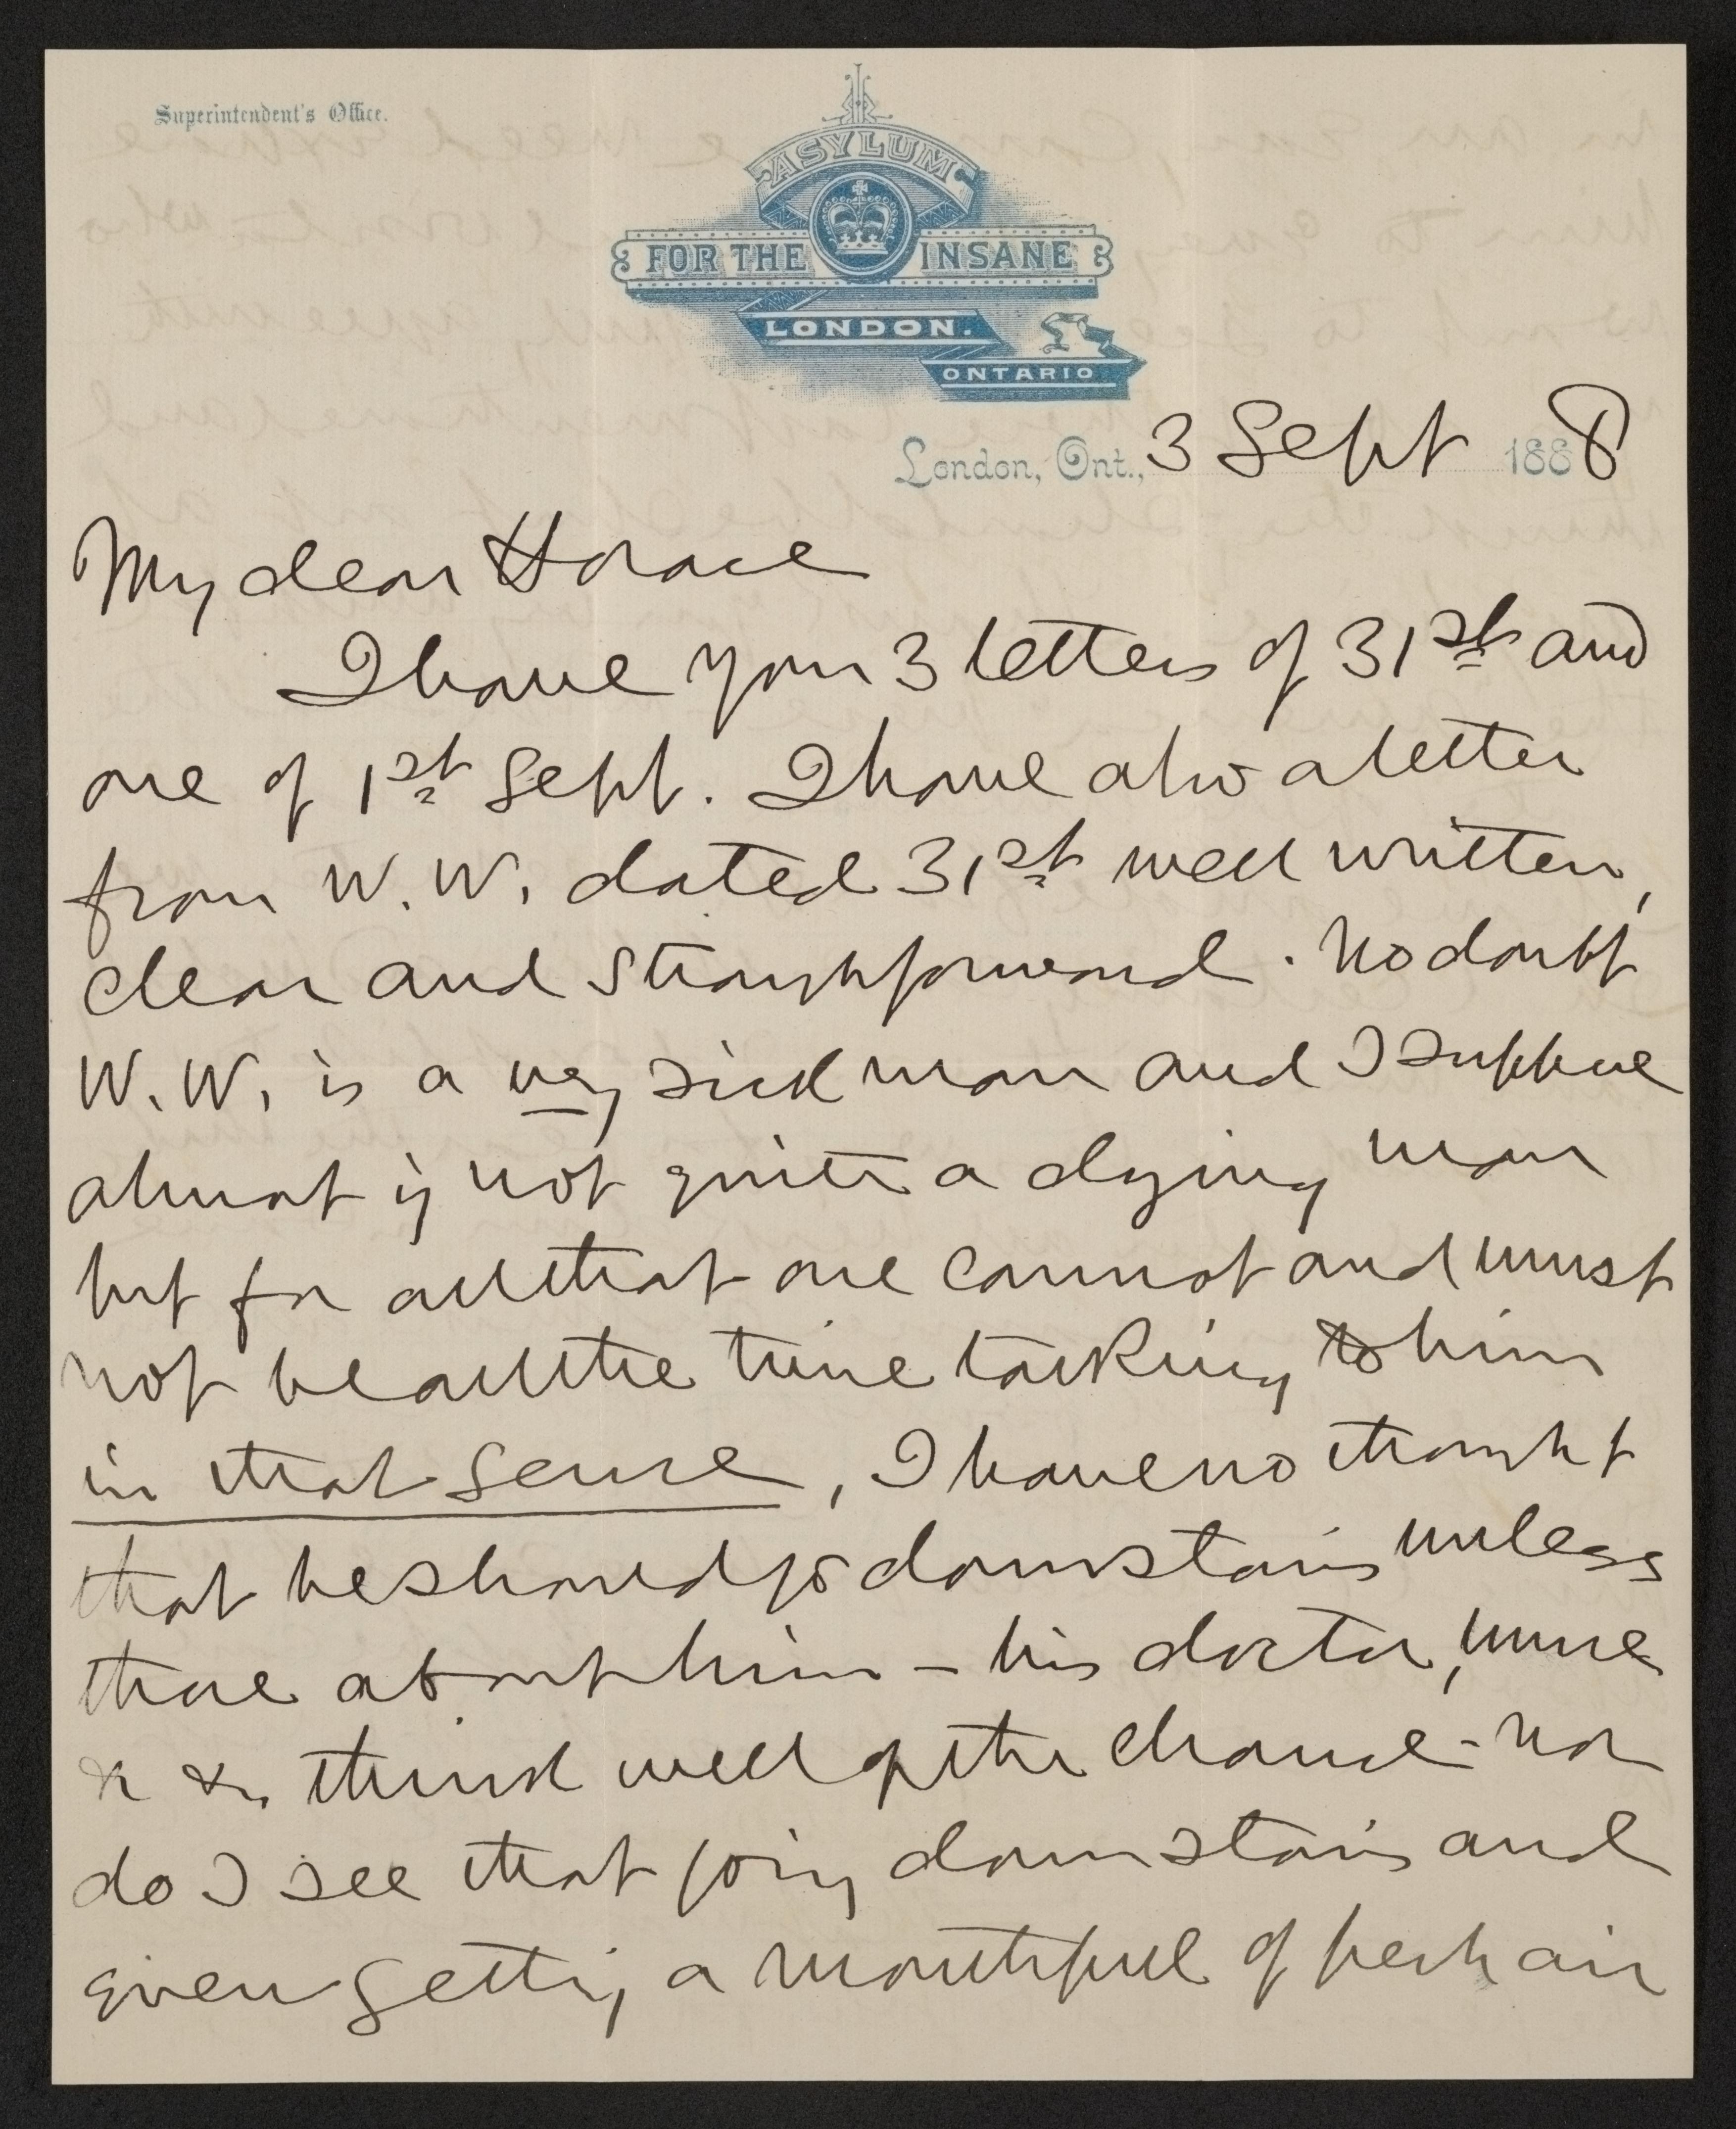 Superintendent's Office.
ASYLUM
FOR THE INSANE
LONDON.
ONTARIO
London, Ont., 3 Sept 1888
My dear Horace
I have your 3 letters of 31st and
one of 1st Sept. I have also a letter
from W.W. dated 31st well written,
clear and straighforward. No doubt
W.W. is a very sick man and I suppose
almost if not quite a dying man
but for all that one cannot and must
not be all the time talking to him
in that sense, I have no thought
that he should go downstairs unless
those about him – his doctor, nurse
& &c. think well of the chance – nor
do I see that going downstairs and
even getting a mouthful of fresh air